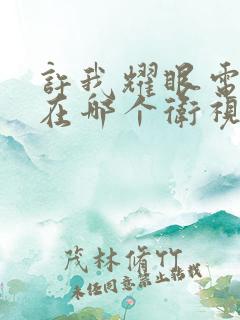 許我耀眼電
在哪个衛視
茂林脩竹
未经同意禁止转载